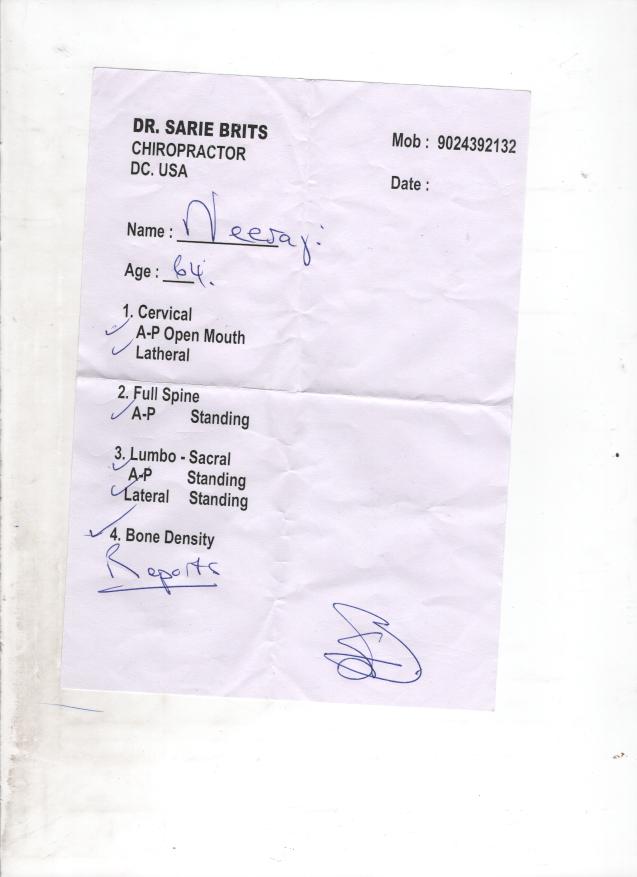 DR. SARIE BRITS
CHIROPRACTOR
DC. USA
Mob : 9024392132
Date :
Name : Neeraj.
Age : 64.
1. Cervical
A-P Open Mouth
Latheral
2. Full Spine
A-P Standing
3. Lumbo - Sacral
A-P Standing
Lateral Standing
4. Bone Density
Reports